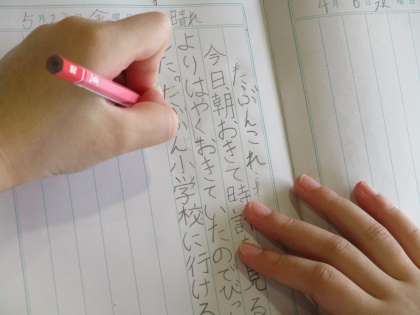 4月6日
5月 金 晴れ
たぶんこれ
今日、朝、おきて時計を見る
よりはやくおきていたのでびっ
した。たぶん小学校に行ける